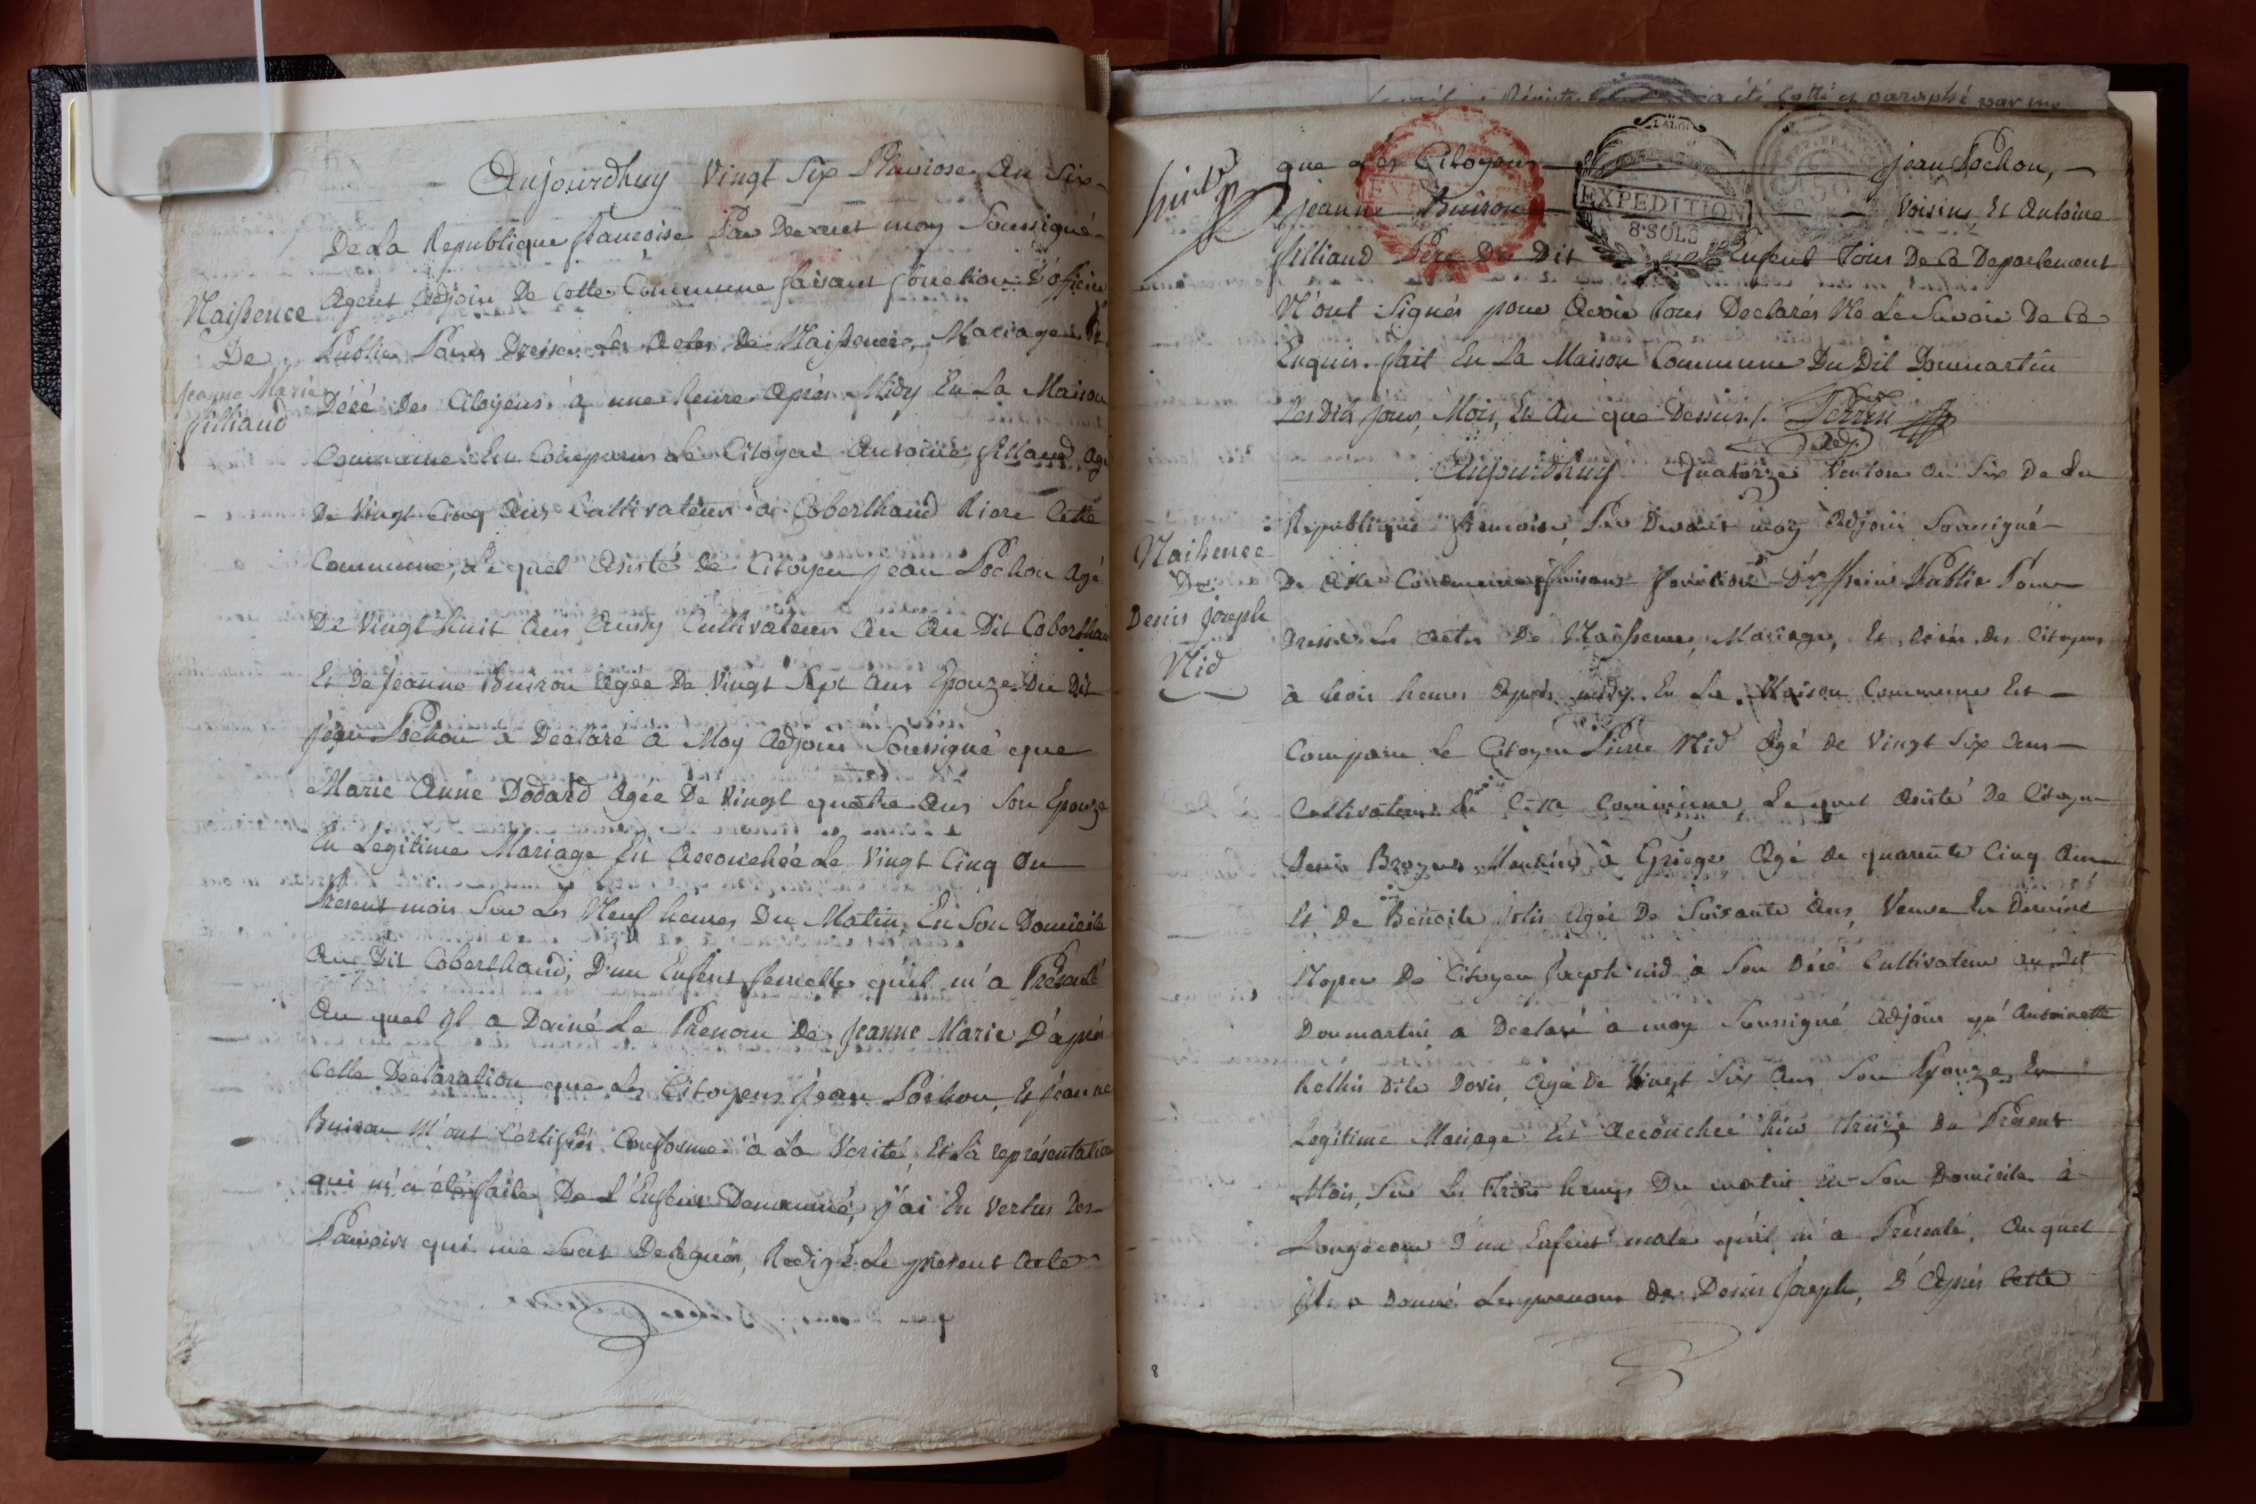 Aujourdhuy Vingt Six Pluviose An Six
De La Republique françoise Par Devant moy Soussigné
Agent Adjoin De Cette Commune faisant fonction D'officier
Public Pour Dresser Les Actes De Naissence, Mariage Et
Décé Des Citoyens, à une heure Après Midy En La Maison
Commune Est Comparus Le Citoyen Antoine filliaud, Agé
De Vingt Cinq Ans Cultivateur à Coberthaud Riere Cette
Commune, Le quel Asisté De Citoyen Jean Pochon Agé
De Vingt huit Ans Aussy Cultivateur Au Au Dit Coberthau
Et De Jeanne Buiron Agée De Vingt Sept Ans Epouze Du Dit
Jean Pochon a Declaré à Moy Adjoin Soussigné que
Marie Anne Dodard Agée De Vingt quatre Ans Son Epouze
En Legitime Mariage Est Accouchée Le Vingt Cinq Du
Présent mois Sur Les Neuf heures Du Matin, En Son Domicile
Au Dit Coberthaud, D'un Enfent femelle qu'il m'a Présenté
Au quel Il a Donné Le Prenom De Jeanne Marie D'après
Cette Declaration que Les Citoyens Jean Pochon, Et Jeanne
Buiron M'ont Certifiés Conforme à La Vérité, Et La représentation
qui m'a été faite De L'Enfent Denommé, j'ai En Vertus Des
Pouvoirs qui me Sont Delegués, Redigé Le présent Acte
Naissence
De
Jeanne Marie
filliaud
que Les Citoyens Jean Pochon,
Jeanne Buiron Voisins Et Antoine
filliaud Père Du Dit Enfent Tous De Ce Departement
N'ont Signés pour Avoir Tous Declarés Ne Le Savoir De Ce
Enquis. fait En La Maison Commune Du Dit Dommartin
Les Dit Jour, Mois, Et An que Dessus./.
Adj.
EXPEDITION
8 SOLS
LA LOI
Aujourdhuy Quatorze Ventose An Six De La
Republique françoise, Par Devant moy Adjoin Soussigné
De Cette Commune faisant fonction D'officier Public Pour
Dresser Les Actes De Naissence, Mariage, Et Décés Des Citoyens
à trois heures Après midy En La Maison Commune Est
Comparu Le Citoyen Pierre Nid Agé De Vingt Six Ans
Cultivateur En Cette Commune Le quel Asisté De Citoyen
Denis à Grièges Agé De quarente Cinq Ans
Et De Benoite Agée De Soixante Ans, Veuve En Derniné
Noper De Citoyen Joseph Nid à Son Décé Cultivateur au Dit
Dommartin a Declaré à moy Soussigné Adjoin qu'Antoinette
Dite Agée De Vingt Six Ans Son Epouze En
Legitime Mariage Est Accouchée hier treize Du Présent
Mois, Sur Les Trois heures Du matin En Son Domicile à
Longecour D'un Enfent male qu'il m'a Présenté, Au quel
Il a Donné Les prenoms De Denis Joseph, D'Après Cette
Naissence
De
Denis Joseph
Nid
8